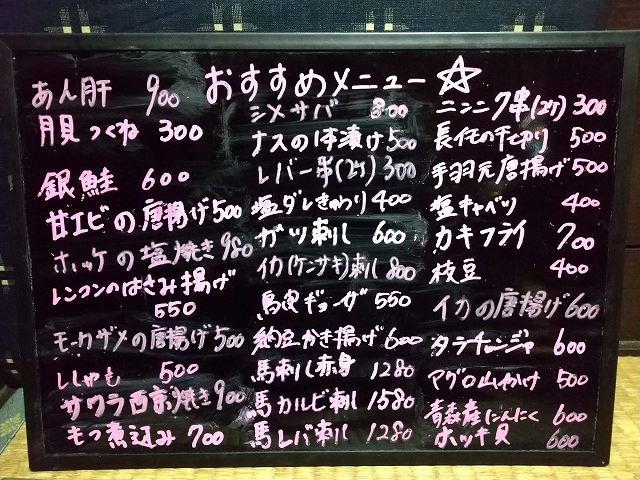 おすすめメニュー☆
あん肝 900
月見つくね 300
銀鮭 600
甘エビの唐揚げ 500
ホッケの塩焼き 980
レンコンのはさみ揚げ
550
モーカザメの唐揚げ 500
ししゃも 500
サワラ西京焼き 900
もつ煮込み 700
シメサバ 800
ナスの1本漬け 500
レバー串(2ケ) 300
塩ダレきゅうり 400
ガツ刺し 600
イカ(ケンサキ)刺し 800
馬肉ギョーザ 550
納豆かき揚げ 600
馬刺し赤身 1280
馬カルビ刺し 1580
馬レバ刺し 1280
ニンニク串(2ケ) 300
長イモの千切り 500
手羽元唐揚げ 500
塩キャベツ 400
カキフライ 700
枝豆 400
イカの唐揚げ 600
タラチャンジャ 600
マグロ山かけ 500
青森産にんにく 600
ホッキ貝 600